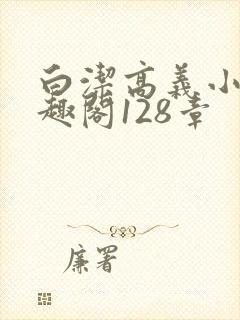 白潔高義小
趣閣128章
廉署